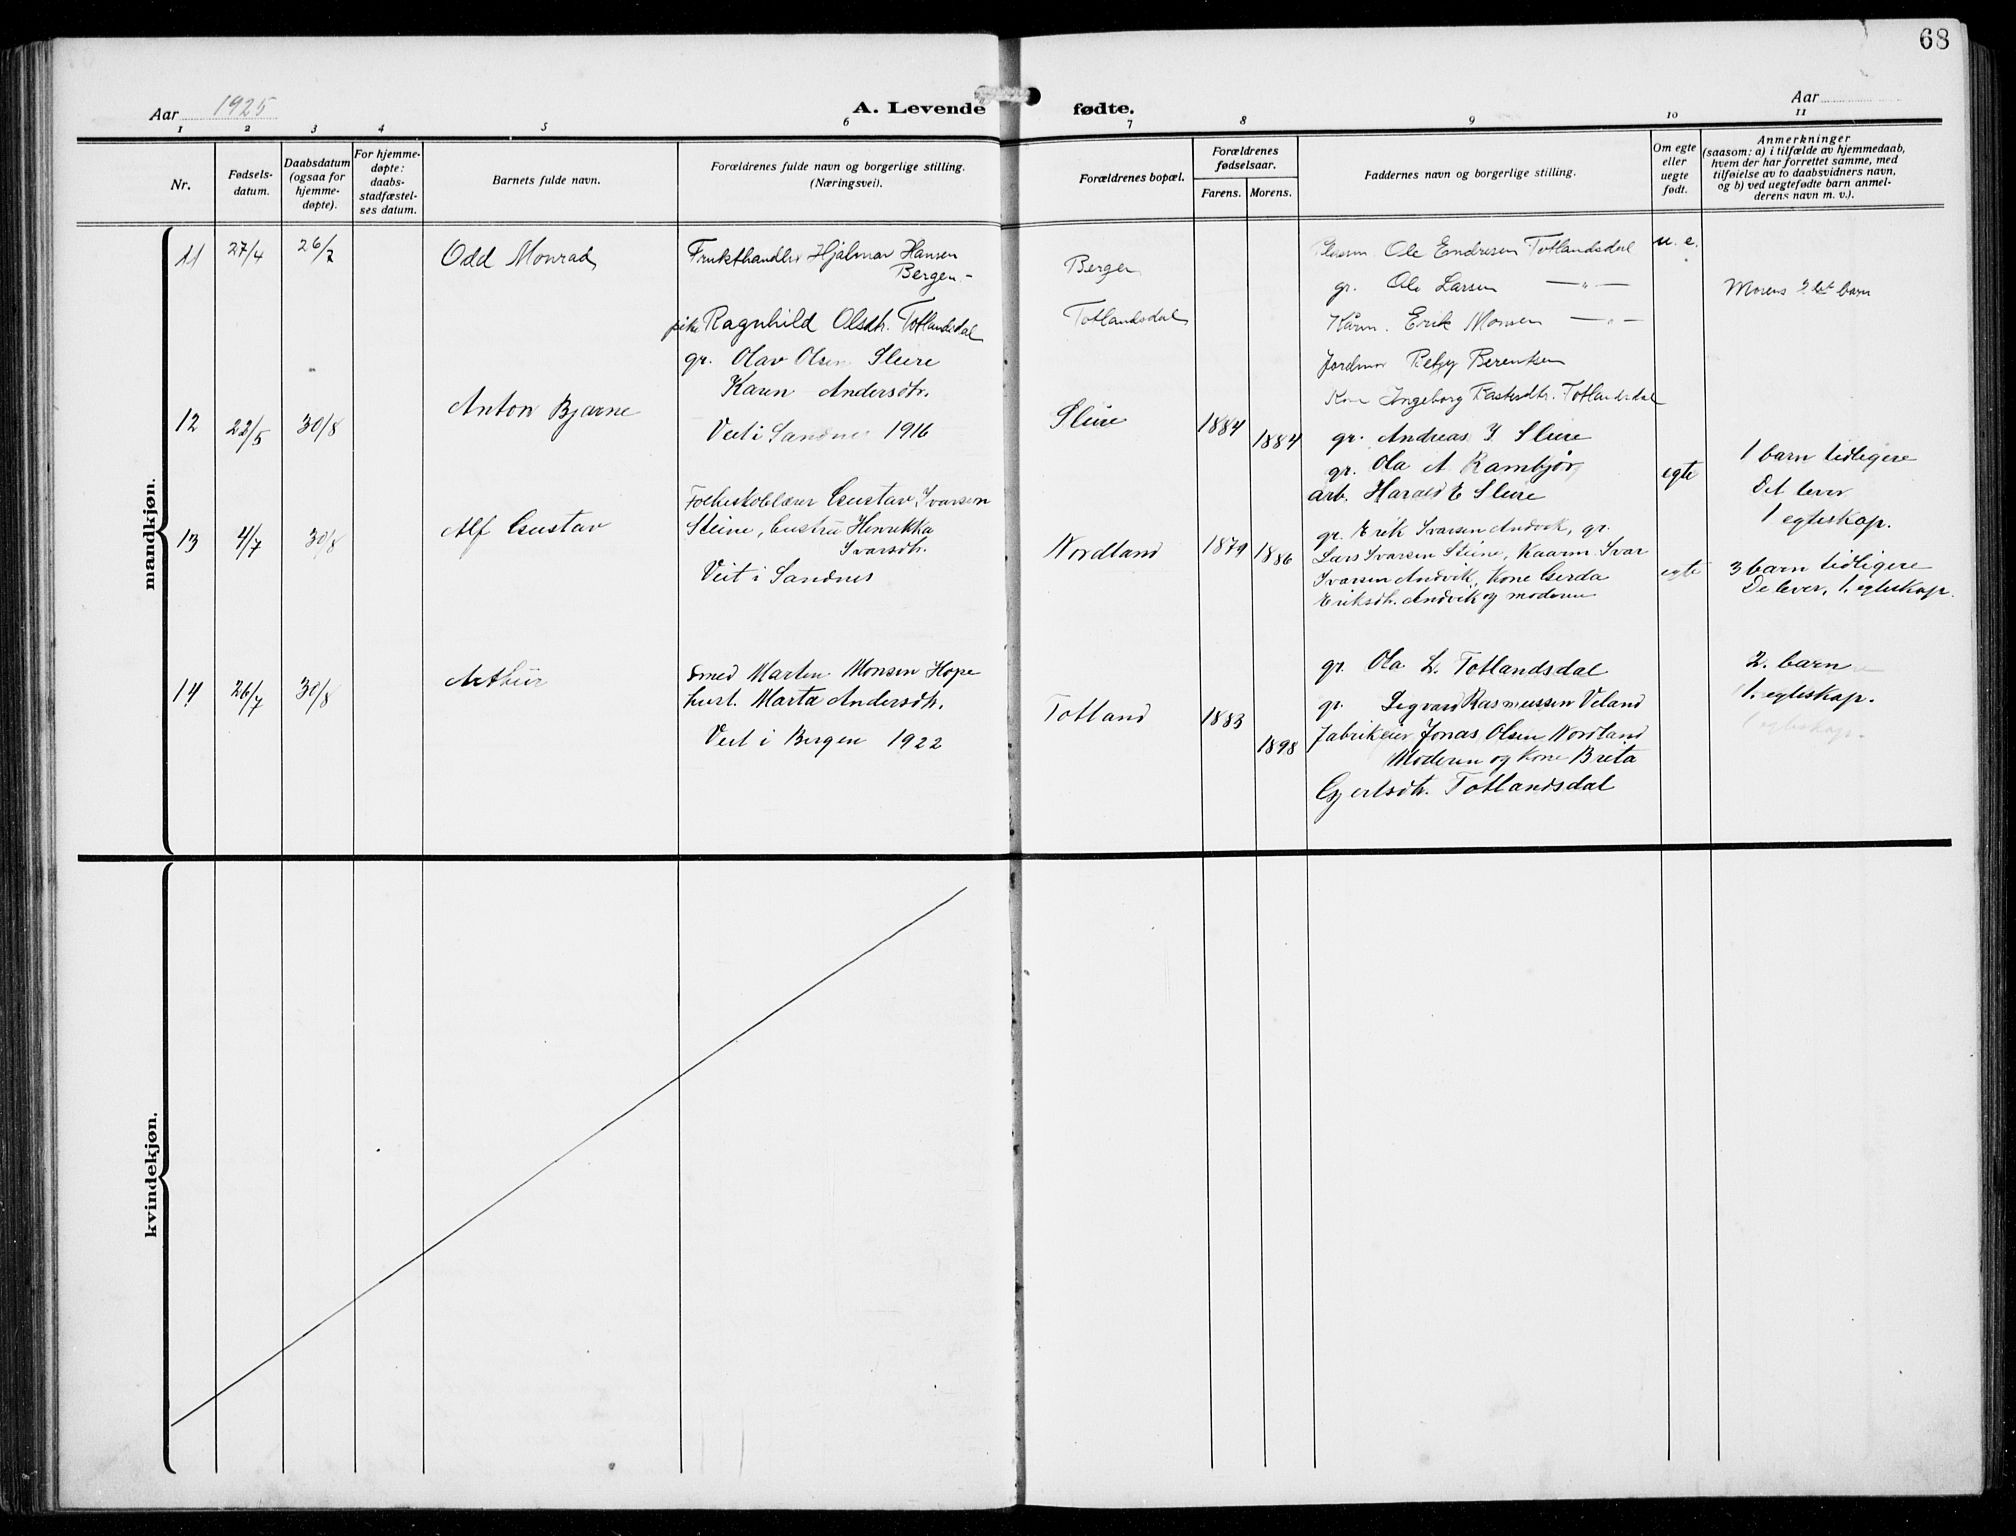 68
Aar 1925
A. Levende fødte.
Aar
1 2 3 4 5 6 7 8 9 10 11
Nr.
Fødsels-
datum.
Daabsdatum
(ogsaa for
hjemme-
døpte).
For hjemme-
døpte:
daabs-
stadfæstel-
ses datum.
Barnets fulde navn.
Forældrenes fulde navn og borgerlige stilling.
(Næringsvei).
Forældrenes bopæl.
Forældrenes
fødselsaar.
Farens. Morens.
Faddernes navn og borgerlige stilling.
Om egte
eller
uegte
født.
Anmerkninger
(saasom: a) i tilfælde av hjemmedaab,
hvem der har forrettet samme, med
tilføielse av to daabsvidners navn,
og b) ved uegtefødte barn anmel-
derens navn m. v.).
mandkjøn.
11 27/4 26/7
Odd Monrad
Frukthandler Hjalmar Hansen
Bergen
pike Ragnhild Olsdtr. Totlandsdal
Bergen
Totlandsdal
Ole Endresen Totlandsdal
gr. Ole Larsen — " —
Kårm. Erik Monsen — " —
Jordmor Berentsen
Kone Ingeborg Totlandsdal
u. e.
Morens barn
12 22/5 30/8
Anton Bjarne
gr. Olav Olsen Sleire
Karen Andersdtr.
Viet i Sandnes 1916
Sleire
1884
1884
gr. Andreas I. Sleire
gr. Ola A. Rambjør
arb. Harald E Sleire
egte
1 barn tidligere
Det lever
1 egteskap.
13 4/7 30/8
Alf Gustav
Folkeskolelærer Gustav Ivarsen
Steine, hustru Henrikka
Ivarsdtr.
Viet i Sandnes
Nordland
1879
1886
gr. Erik Ivarsen Andvik, gr.
Lars Ivarsen Steine, Kaarm. Ivar
Ivarsen Andvik, Kone Gerda
Eriksdtr. Andvik og moderen
egte
3 barn tidligere
De lever, 1. egteskap.
14 26/7 30/8
Arthur
Smed Marten Monsen Hope
hust. Marta Andersdtr.
Viet i Bergen 1922
Totland
1883
1898
gr. Ola L. Totlandsdal
gr. Sigvard Rasmussen Veland
Fabrikeier Jonas Olsen Nordland
Moderen og Kone Brita
Gjertsdtr. Totlandsdal
2. barn
1. egteskap.
1 egteskap.
kvindekjøn.